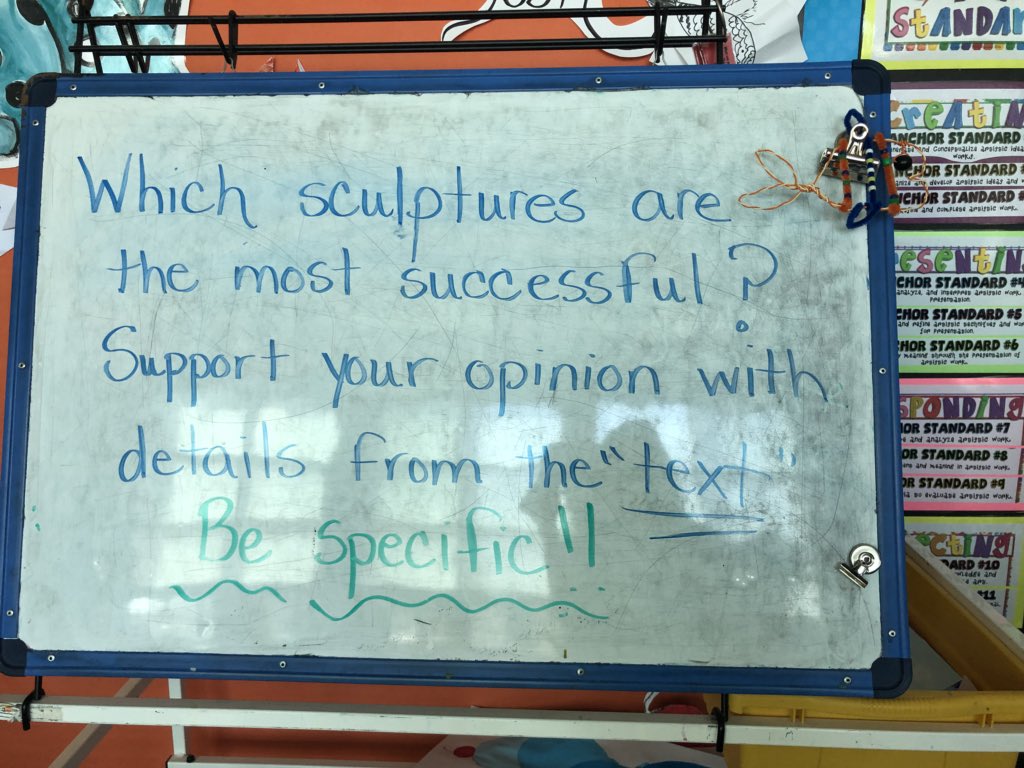 Which sculptures are
the most successful?
Support your opinion with
details from the "text"
Be specific!!
STANDAR
CREATIN
ANCHOR STANDARD
and conceptualize artistic idea
works.
NCHOR STANDARD
and develop artistic ideas and
NCHOR STANDARD
and complete artistic work.
ESENTIN
CHOR STANDARD #4
analyze, and interpret artistic work.
presentation.
CHOR STANDARD #5
and refine artistic techniques and wo
for presentation.
CHOR STANDARD #6
meaning through the presentation of
artistic work.
SPONDING
OR STANDARD #7
and analyze artistic work.
OR STANDARD #8
and meaning in artistic work.
OR STANDARD #9
to evaluate artistic work.
CTING
DARD #10
knowledge and
#11